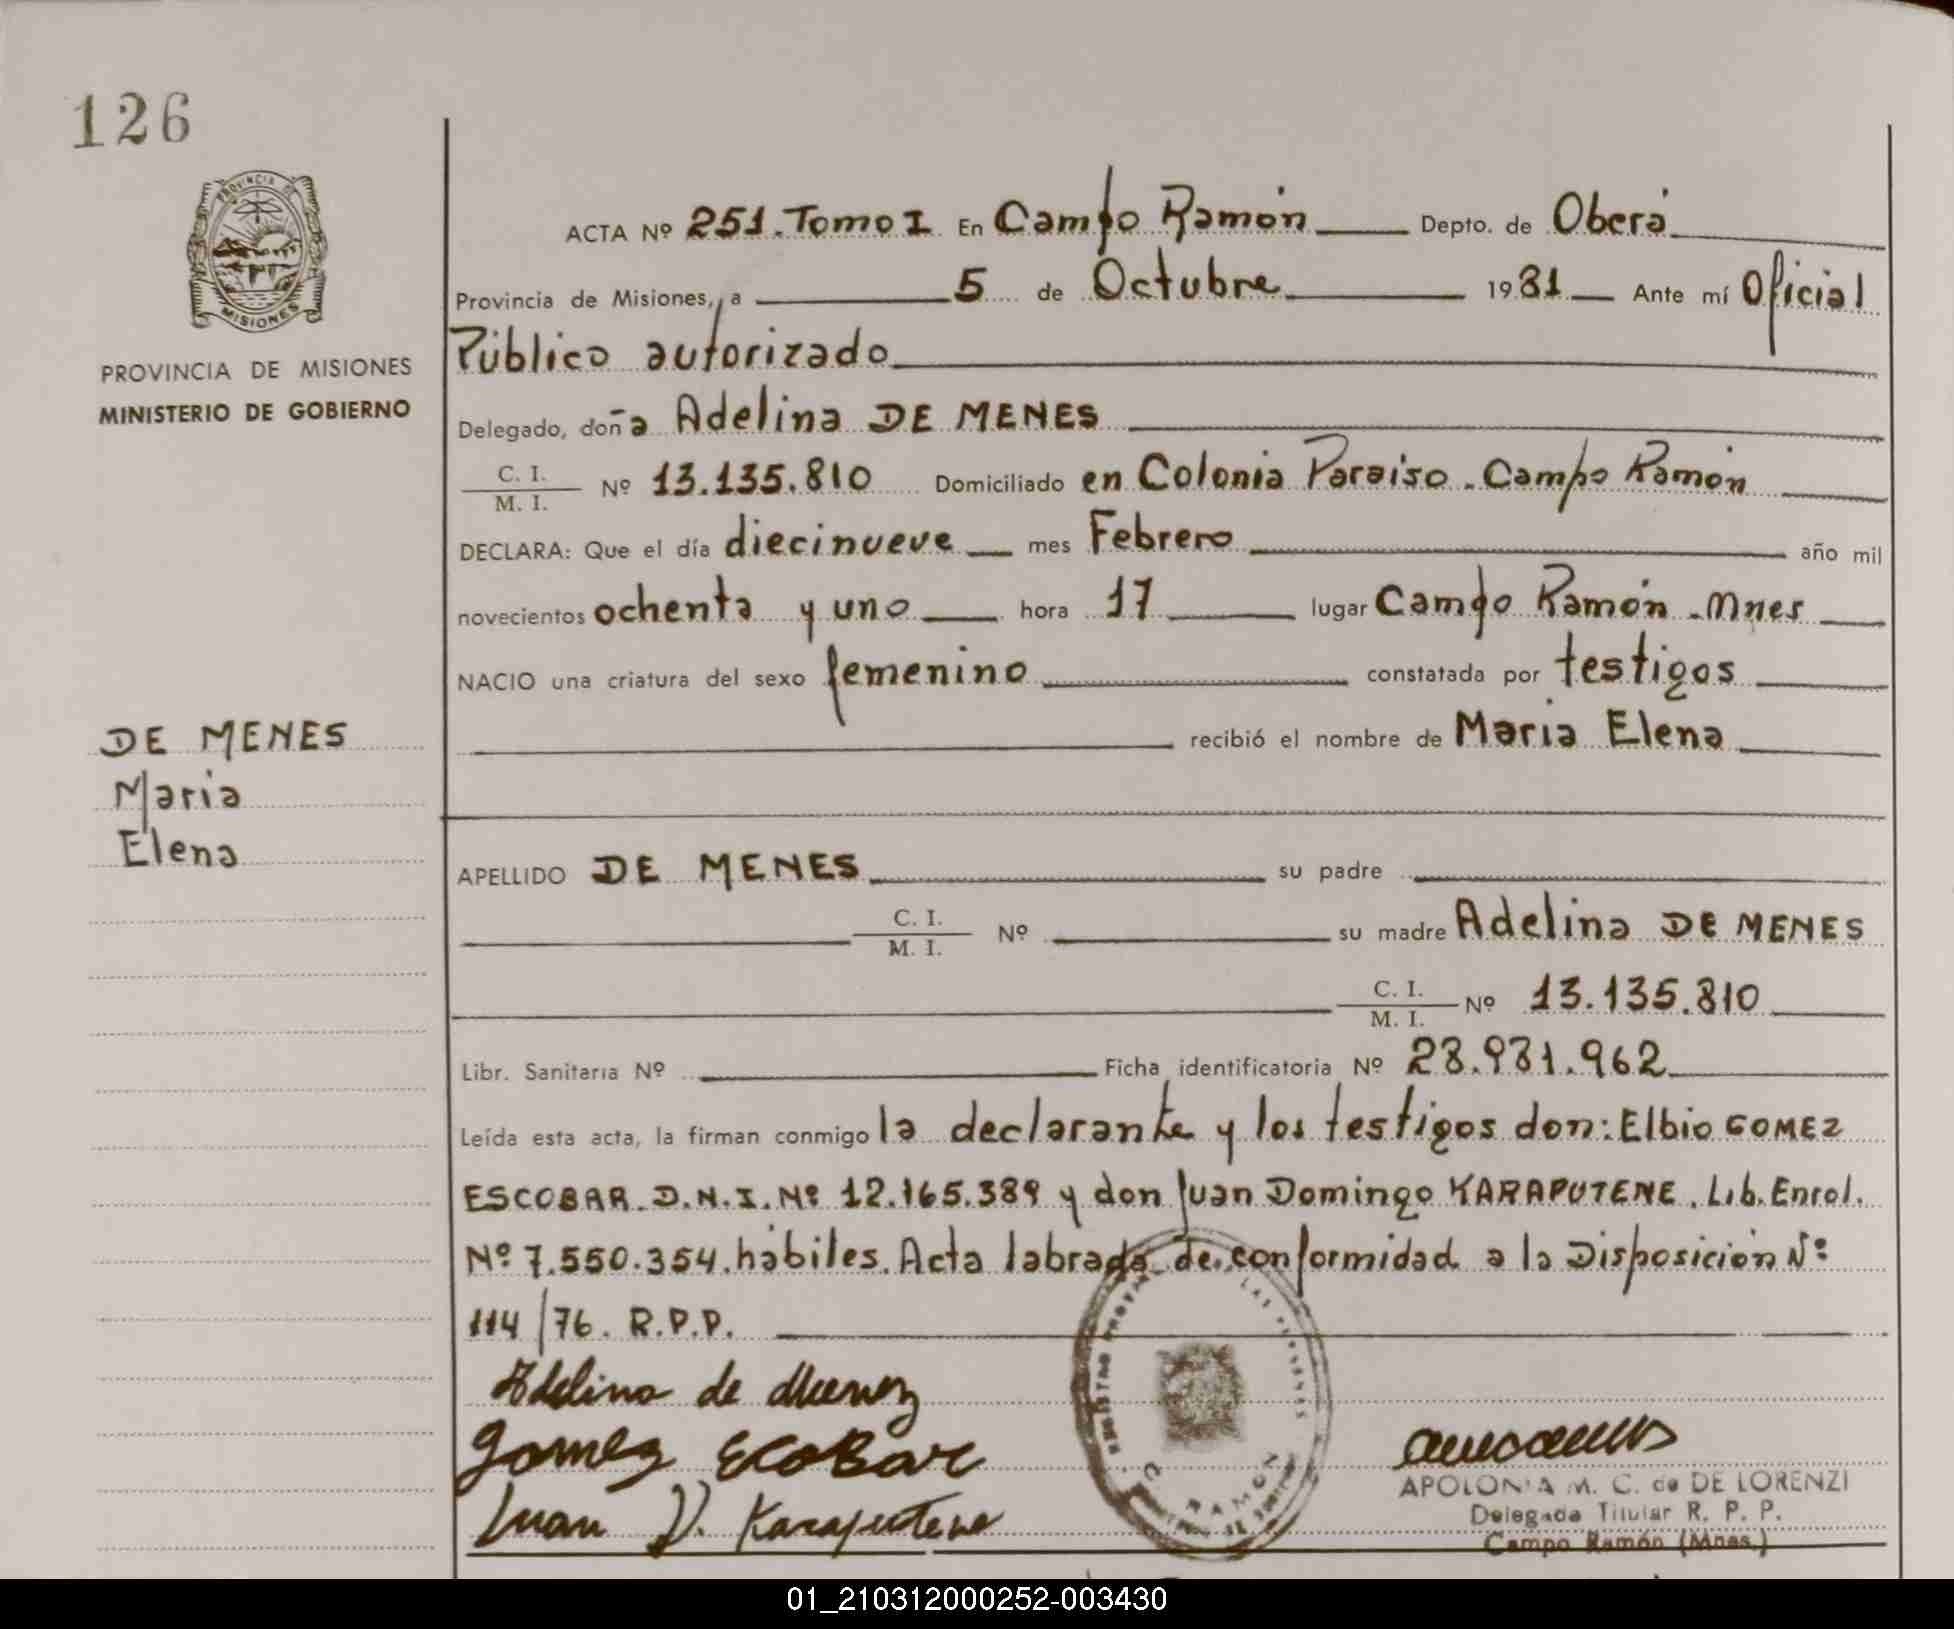 126
PROVINCIA DE MISIONES
PROVINCIA DE MISIONES
MINISTERIO DE GOBIERNO
DE MENES
Maria
Elena
ACTA Nº 251. Tomo I En Campo Ramón Depto. de Oberá
Provincia de Misiones, a 5 de Octubre 1981 Ante mí Oficial
Público autorizado
Delegado, doña Adelina DE MENES
C. I. / M. I. Nº 13.135.810 Domiciliado en Colonia Paraiso - Campo Ramón
DECLARA: Que el día diecinueve mes Febrero año mil
novecientos ochenta y uno hora 17 lugar Campo Ramón - Mnes
NACIO una criatura del sexo femenino constatada por testigos
recibió el nombre de Maria Elena
APELLIDO DE MENES su padre
C. I. / M. I. Nº su madre Adelina DE MENES
C. I. / M. I. Nº 13.135.810
Libr. Sanitaria Nº Ficha identificatoria Nº 28.931.962
Leída esta acta, la firman conmigo la declarante y los testigos don: Elbio GOMEZ
ESCOBAR. D.N.I. Nº 12.165.389 y don Juan Domingo KARAPUTENE. Lib. Enrol.
Nº 7.550.354. hábiles. Acta labrada de conformidad a la Disposición Nº
114/76. R.P.P.
Adelina de Menez
Gomez EcoBar
Juan D. Karaputene
RAMON
APOLONIA M. C. de DE LORENZI
Delegada Titular R. P. P.
Campo Ramón (Mnes.)
01_210312000252-003430